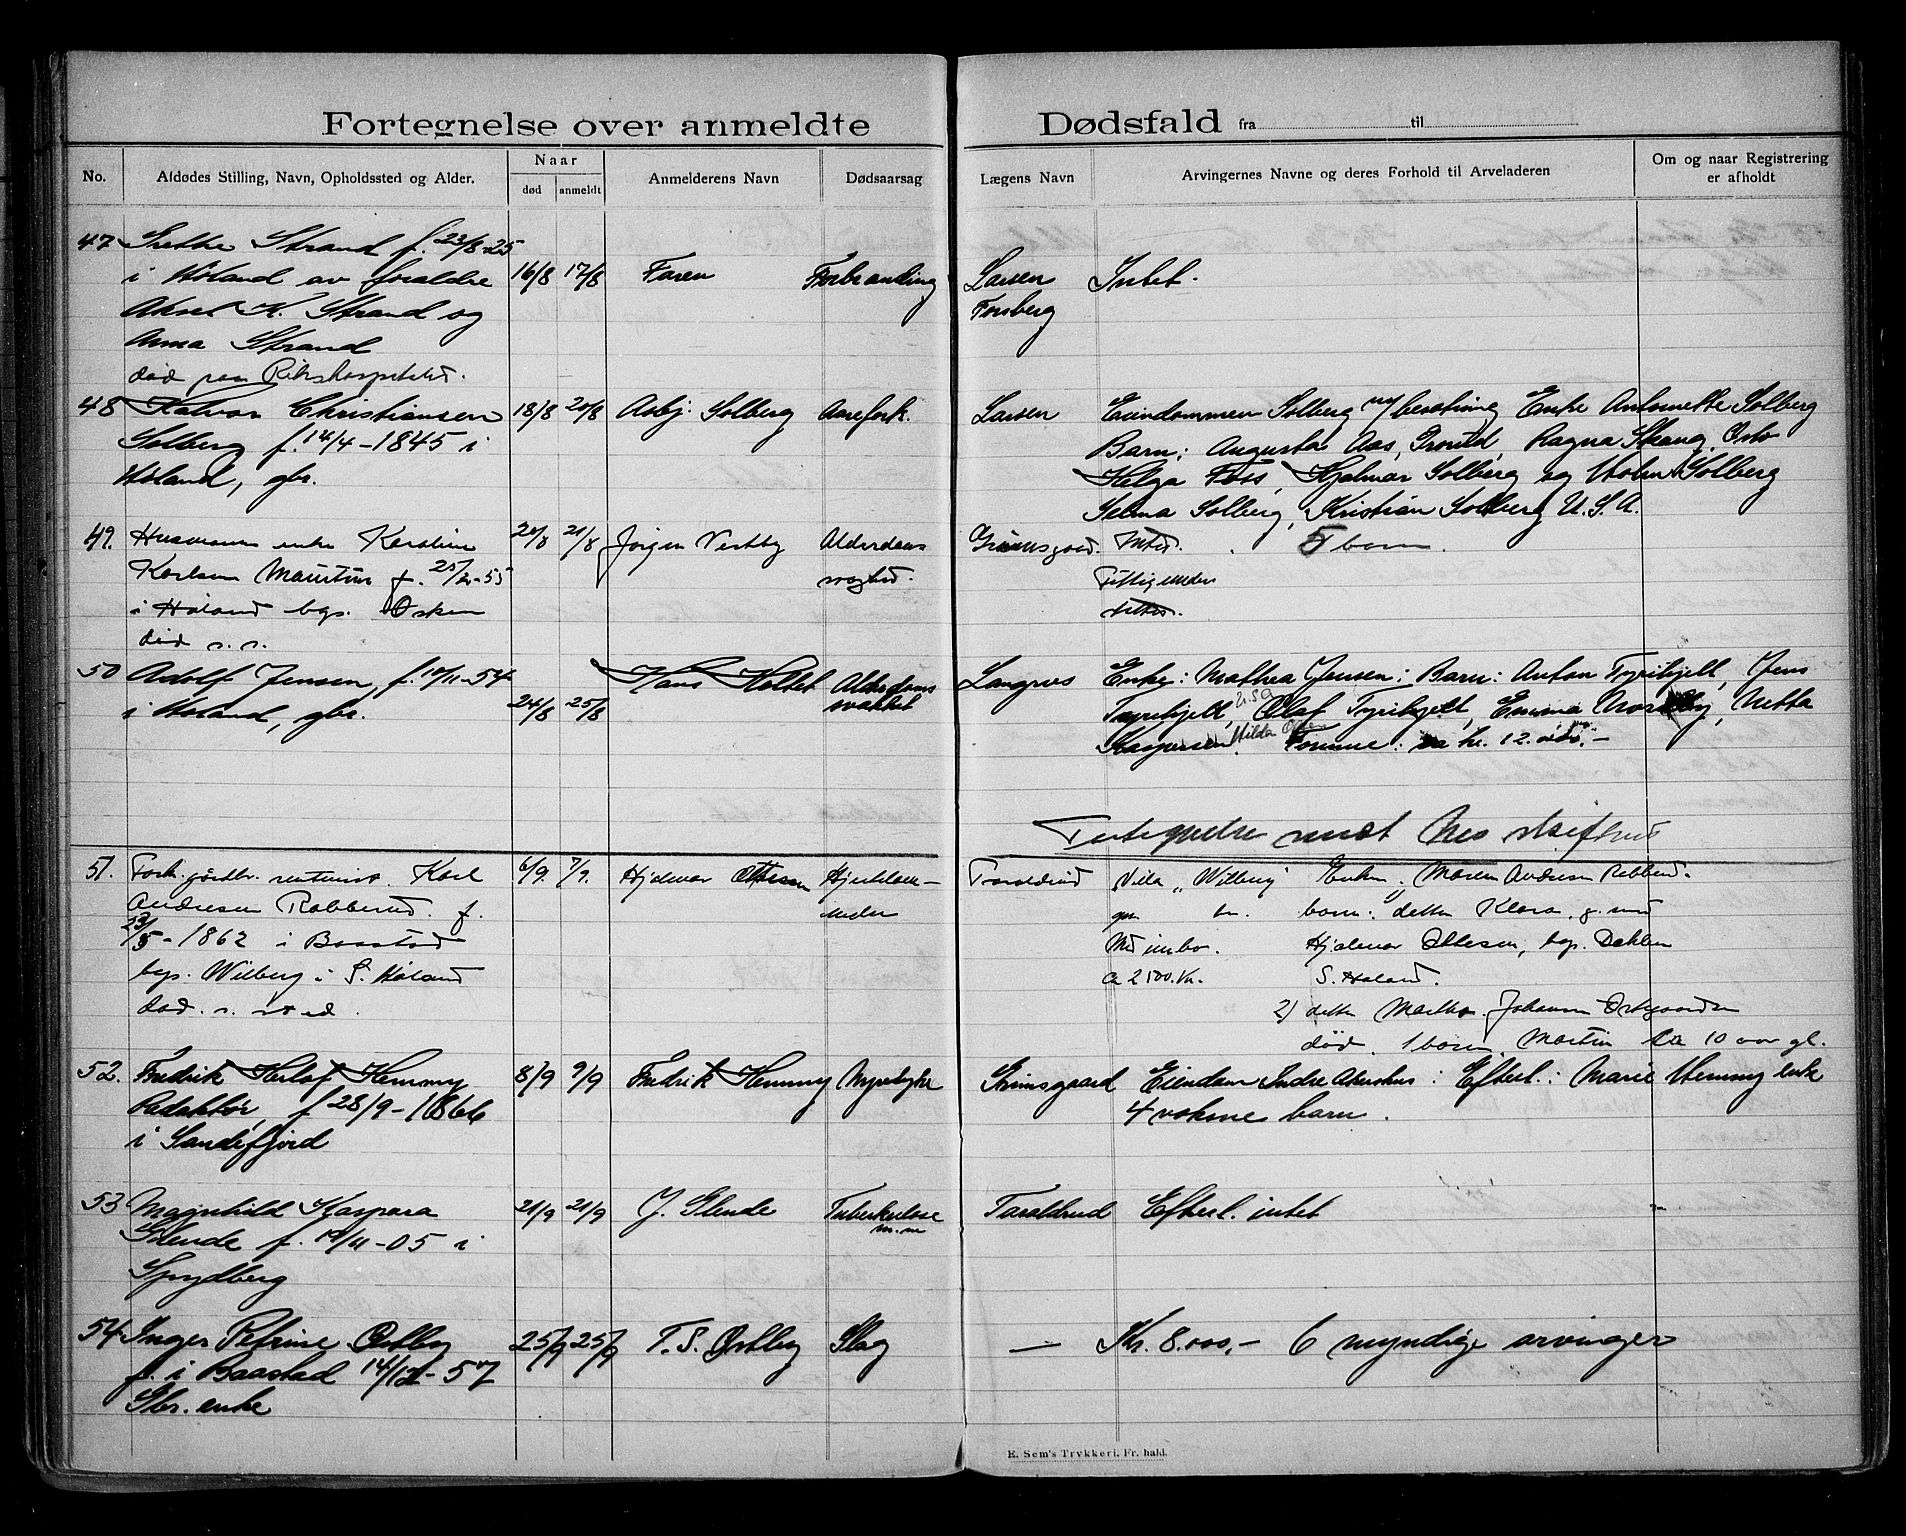 Fortegnelse over anmeldte Dødsfald fra til
No.
Afdødes Stilling, Navn, Opholdssted og Alder.
Naar
død
anmeldt
Anmelderens Navn
Dødsaarsag
Lægens Navn
Arvingernes Navne og deres Forhold til Arveladeren
Om og naar Registrering
er afholdt
47 Grethe Strand f. 23/8-25
i Høland av foreldre
Aksel K. Strand og
Anna Strand
død paa Rikshospitalet.
16/8 17/8 Faren Forbrænding
Larsen
Forsberg
Intet.
48 Halvor Christiansen
Solberg f. 14/4-1845 i
Høland, gbr.
18/8 20/8 Asbj. Solberg Aarefork.
Larsen
Eiendommen Solberg m/ besetning Enke Antonette Solberg
Barn: Augusta Aas, Grorud, Ragna Skaug, Oslo
Helga Foss, Hjalmar Solberg og Holm Solberg
Selma Solberg, Kristian Solberg U.S.A.
49. Husmanns enke Karoline
Karlsen f. 25/2-55
i Høland bgs.
død s. s.
20/8 21/8 Jørgen Vestby Alderdoms
svaghed.
Grimsgaard. Intet. 5 barn.
50 Adolf Jensen, f. 10/11-54
i Høland, gbr.
24/8 25/8
Hans Holtet Alderdoms
svakhet
Langnes
Enke: Mathea Jensen; Barn: Anton Tyrihjell, Jens
Tyrihjell, U.S.A. Olaf Tyrihjell, Emma Nordby, Netta
Kaspersen. Hilda Olsen Formue: ca kr. 12.000.-
51. Forh. gårdbr. rentenist. Karl
Andresen Rabberud. f.
23/5-1862 i Baastad
bgs. Wilberg i S. Høland
død. s. sted.
6/9. 7/9. Hjalmar Ottesen Hjerteslag
Taraldrud
Villa "Wilberg"
Md innbo.
ca 2500. Kr.
Enken, Maren Andresen Rabberud.
barn: datter Klara, g. med
Hjalmar Ottesen, bgs. Dahlen
S. Høland.
2) datter Martha Johansen
død. 1 barn, Martin ca 10 aar gl.
52. Fredrik Herlof Hemmy
Redaktør, f 28/9-1866
i Sandefjord
8/9 9/9 Fredrik Hemmy Nyresyke
Grimsgaard
Eiendom Indre Akershus: Efterl.: Marie Hemmy enke
4 voksne barn.
53 Magnhild Kaspara
Glende f. 10/11-05 i
Spydberg
21/9 21/9 J. Glende Tuberkulose
m.m
Taraldrud Efterl. intet
54 Inger Petrine Østby
f. i Baastad 14/12-57
Gbr. enke
25/9 25/9 T. S. Østby Slag
— Kr. 8.000,- 6 myndige arvinger
E. Sem's Trykkeri, Fr. hald.